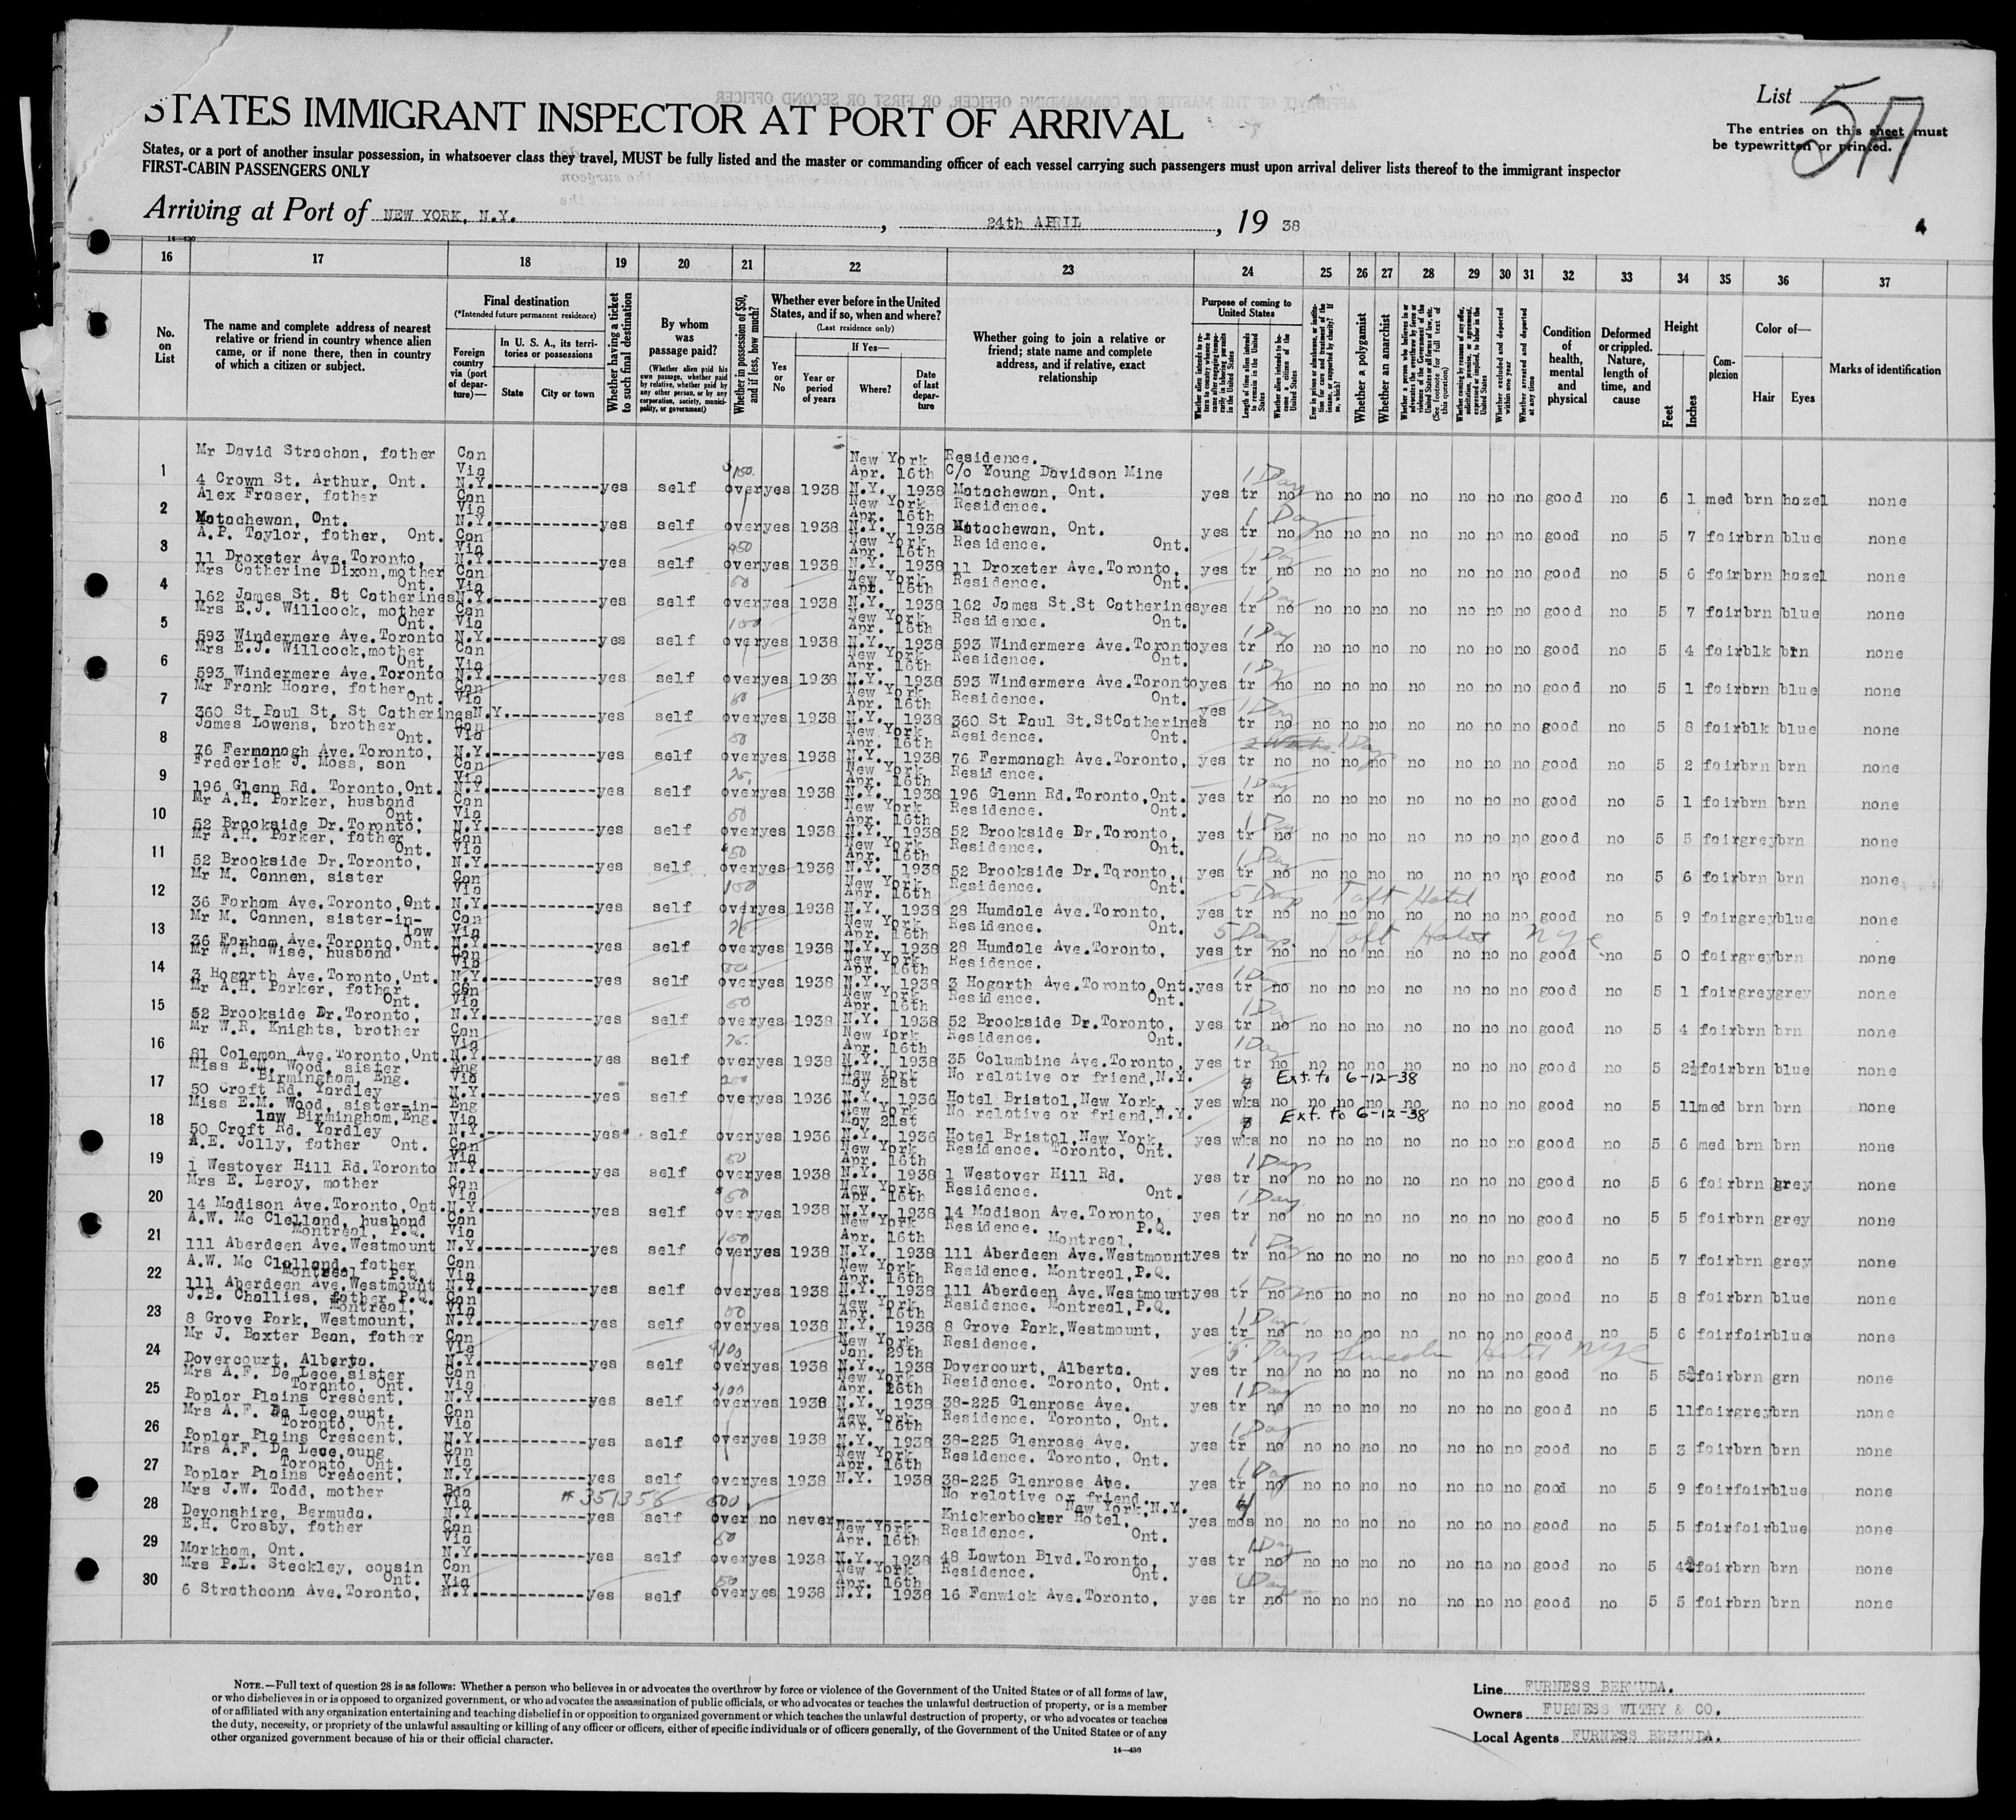 List 5A
STATES IMMIGRANT INSPECTOR AT PORT OF ARRIVAL
The entries on this sheet must
be typewritten or printed.
States, or a port of another insular possession, in whatsoever class they travel, MUST be fully listed and the master or commanding officer of each vessel carrying such passengers must upon arrival deliver lists thereof to the immigrant inspector
FIRST-CABIN PASSENGERS ONLY
Arriving at Port of NEW YORK, N.Y. , 24th APRIL , 19 38
14—430
16 17 18 19 20 21 22 23 24 25 26 27 28 29 30 31 32 33 34 35 36 37
No. on List
The name and complete address of nearest relative or friend in country whence alien came, or if none there, then in country of which a citizen or subject.
Final destination
(*Intended future permanent residence)
Foreign country via (port of departure)—
In U. S. A., its territories or possessions
State City or town
Whether having a ticket to such final destination
By whom was passage paid?
(Whether alien paid his own passage, whether paid by relative, whether paid by any other person, or by any corporation, society, municipality, or government)
Whether in possession of $50, and if less, how much?
Whether ever before in the United States, and if so, when and where?
(Last residence only)
Yes or No
If Yes—
Year or period of years
Where?
Date of last departure
Whether going to join a relative or friend; state name and complete address, and if relative, exact relationship
Purpose of coming to United States
Length of time alien intends to remain in the United States
Whether alien intends to become a citizen of the United States
Whether a polygamist
Whether an anarchist
Whether excluded and deported within one year
Whether arrested and deported at any time
Condition of health, mental and physical
Deformed or crippled. Nature, length of time, and cause
Height
Feet Inches
Complexion
Color of—
Hair Eyes
Marks of identification
1 Mr David Strachan, father 4 Crown St. Arthur, Ont. Can Via N.Y. yes self $150. over yes 1938 New York N.Y. Apr. 16th 1938 Residence. C/o Young Davidson Mine Matachewan, Ont. yes tr 1 Day no no no no no no no no good no 6 1 med brn hazel none
2 Alex Fraser, father Matachewan, Ont. Can Via N.Y. yes self over yes 1938 New York N.Y. Apr. 16th 1938 Residence. Matachewan, Ont. yes tr 1 Day no no no no no no no no good no 5 7 fair brn blue none
3 A.P. Taylor, father, Ont. 11 Droxeter Ave.Toronto, Can Via N.Y. yes self over yes 1938 New York N.Y. Apr. 16th 1938 Residence. Ont. 11 Droxeter Ave.Toronto, yes tr 1 Day no no no no no no no no good no 5 6 fair brn hazel none
4 Mrs Catherine Dixon,mother Ont. 162 James St. St Catherines Can Via N.Y. yes self 50 over yes 1938 New York N.Y. Apr. 16th 1938 Residence. Ont. 162 James St.St Catherines yes tr 1 Day no no no no no no no no good no 5 7 fair brn blue none
5 Mrs E.J. Willcock, mother Ont. 593 Windermere Ave.Toronto Can Via N.Y. yes self 100 over yes 1938 New York N.Y. Apr. 16th 1938 Residence. Ont. 593 Windermere Ave.Toronto yes tr 1 Day no no no no no no no no good no 5 4 fair blk brn none
6 Mrs E.J. Willcock,mother Ont. 593 Windermere Ave.Toronto Can Via N.Y. yes self over yes 1938 New York N.Y. Apr. 16th 1938 Residence. Ont. 593 Windermere Ave.Toronto yes tr 1 Day no no no no no no no no good no 5 1 fair brn blue none
7 Mr Frank Hoare, father Ont. 360 St Paul St. St Catherines Can Via N.Y. yes self 50 over yes 1938 New York N.Y. Apr. 16th 1938 Residence. Ont. 360 St Paul St.StCatherines yes tr 1 Day no no no no no no no no good no 5 8 fair blk blue none
8 James Lowens, brother Ont. 76 Fermanagh Ave.Toronto, Can Via N.Y. yes self 50 over yes 1938 New York N.Y. Apr. 16th 1938 Residence. Ont. 76 Fermanagh Ave.Toronto, yes tr 1 Day no no no no no no no no good no 5 2 fair brn brn none
9 Frederick J. Moss, son 196 Glenn Rd. Toronto,Ont. Can Via N.Y. yes self 75. over yes 1938 New York N.Y. Apr. 16th 1938 Residence. 196 Glenn Rd.Toronto,Ont. yes tr 1 Day no no no no no no no no good no 5 1 fair brn brn none
10 Mr A.H. Parker, husband Ont. 52 Brookside Dr.Toronto, Can Via N.Y. yes self 50 over yes 1938 New York N.Y. Apr. 16th 1938 Residence. Ont. 52 Brookside Dr.Toronto, yes tr 1 Day no no no no no no no no good no 5 5 fair grey brn none
11 Mr A.H. Parker, father Ont. 52 Brookside Dr.Toronto, Can Via N.Y. yes self $50 over yes 1938 New York N.Y. Apr. 16th 1938 Residence. Ont. 52 Brookside Dr.Toronto, yes tr 1 Day no no no no no no no no good no 5 6 fair brn brn none
12 Mr M. Cannen, sister 36 Farham Ave.Toronto,Ont. Can Via N.Y. yes self 100 over yes 1938 New York N.Y. Apr. 16th 1938 Residence. Ont. 28 Humdale Ave.Toronto, yes tr 5 Days Taft Hotel no no no no no no no no good no 5 9 fair grey blue none
13 Mr M. Cannen, sister-in-law 36 Farham Ave.Toronto,Ont. Can Via N.Y. yes self 75 over yes 1938 New York N.Y. Apr. 16th 1938 Residence. Ont. 28 Humdale Ave.Toronto, yes tr 5 Days. Taft Hotel NYC no no no no no no no no good no 5 0 fair grey brn none
14 Mr W.H. Wise, husband 3 Hogarth Ave.Toronto,Ont. Can Via N.Y. yes self 50 over yes 1938 New York N.Y. Apr. 16th 1938 Residence. 3 Hogarth Ave.Toronto,Ont. yes tr 1 Day no no no no no no no no good no 5 1 fair grey grey none
15 Mr A.H. Parker, father Ont. 52 Brookside Dr.Toronto, Can Via N.Y. yes self 50 over yes 1938 New York N.Y. Apr. 16th 1938 Residence. Ont. 52 Brookside Dr.Toronto, yes tr 1 Day no no no no no no no no good no 5 4 fair brn brn none
16 Mr W.R. Knights, brother 81 Coleman Ave.Toronto,Ont. Can Via N.Y. yes self 75. over yes 1938 New York N.Y. Apr. 16th 1938 Residence. Ont. 35 Columbine Ave.Toronto, yes tr 1 Day no no no no no no no no good no 5 2½ fair brn blue none
17 Miss E.M. Wood, sister Birmingham, Eng. 50 Croft Rd. Yardley Eng Via N.Y. yes self 200 over yes 1936 New York N.Y. May 21st 1936 No relative or friend,N.Y. Hotel Bristol,New York, yes wks Ext. to 6-12-38 no no no no no no no no good no 5 11 med brn brn none
18 Miss E.M. Wood, sister-in-law Birmingham,Eng. 50 Croft Rd. Yardley Eng Via N.Y. yes self over yes 1936 New York N.Y. May 21st 1936 No relative or friend,N.Y. Hotel Bristol,New York, yes wks Ext. to 6-12-38 no no no no no no no no good no 5 6 med brn brn none
19 A.E. Jolly, father Ont. 1 Westover Hill Rd.Toronto Can Via N.Y. yes self 50 over yes 1938 New York N.Y. Apr. 16th 1938 Residence. Toronto, Ont. 1 Westover Hill Rd. yes tr 1 Day no no no no no no no no good no 5 6 fair brn grey none
20 Mrs E. Leroy, mother 14 Madison Ave.Toronto,Ont. Can Via N.Y. yes self $50 over yes 1938 New York N.Y. Apr. 16th 1938 Residence. Ont. 14 Madison Ave.Toronto, yes tr 1 Day no no no no no no no no good no 5 5 fair brn grey none
21 A.W. Mc Clelland, husband Montreal, P.Q. 111 Aberdeen Ave.Westmount Can Via N.Y. yes self 100 over yes 1938 New York N.Y. Apr. 16th 1938 Residence. P.Q. Montreal, 111 Aberdeen Ave.Westmount yes tr 1 Day no no no no no no no no good no 5 7 fair brn grey none
22 A.W. Mc Clelland, father Montreal P.Q. 111 Aberdeen Ave.Westmount Can Via N.Y. yes self over yes 1938 New York N.Y. Apr. 16th 1938 Residence. Montreal,P.Q. 111 Aberdeen Ave.Westmount yes tr 1 Day no no no no no no no no good no 5 8 fair brn blue none
23 J.B. Challies, father P.Q. Montreal, 8 Grove Park, Westmount, Can Via N.Y. yes self 50 over yes 1938 New York N.Y. Apr. 16th 1938 Residence. Montreal,P.Q. 8 Grove Park,Westmount, yes tr 1 Day no no no no no no no no good no 5 6 fair fair blue none
24 Mr J. Baxter Bean, father Dovercourt, Alberta. Can Via N.Y. yes self $100 over yes 1938 New York N.Y. Jan. 29th 1938 Residence. Dovercourt, Alberta. yes tr 5 Days Lincoln Hotel NYC no no no no no no no no good no 5 5½ fair brn grn none
25 Mrs A.F. De Lece,sister Toronto, Ont. Poplar Plains Crescent, Can Via N.Y. yes self $100 over yes 1938 New York N.Y. Apr. 16th 1938 Residence. Toronto, Ont. 38-225 Glenrose Ave. yes tr 1 Day no no no no no no no no good no 5 11 fair grey brn none
26 Mrs A.F. De Lece,aunt, Toronto, Ont. Poplar Plains Crescent, Can Via N.Y. yes self over yes 1938 New York N.Y. Apr. 16th 1938 Residence. Toronto, Ont. 38-225 Glenrose Ave. yes tr 1 Day no no no no no no no no good no 5 3 fair brn brn none
27 Mrs A.F. De Lece,aung Toronto, Ont. Poplar Plains Crescent, Can Via N.Y. yes self over yes 1938 New York N.Y. Apr. 16th 1938 Residence. Toronto, Ont. 38-225 Glenrose Ave. yes tr 1 Day no no no no no no no no good no 5 9 fair fair blue none
28 Mrs J.W. Todd, mother Devonshire, Bermuda. Bda Via N.Y. #351358 yes self 500 over no never No relative or friend. New York,N.Y. Knickerbocker Hotel, yes mos no no no no no no no no good no 5 5 fair fair blue none
29 E.H. Crosby, father Markham, Ont. Can Via N.Y. yes self 50 over yes 1938 New York N.Y. Apr. 16th 1938 Residence. Ont. 48 Lawton Blvd.Toronto, yes tr 1 Day no no no no no no no no good no 5 4½ fair brn brn none
30 Mrs P.L. Steckley, cousin Ont. 6 Strathcona Ave.Toronto, Can Via N.Y. yes self 50 over yes 1938 New York N.Y. Apr. 16th 1938 Residence. Ont. 16 Fenwick Ave.Toronto, yes tr 1 Day no no no no no no no no good no 5 5 fair brn brn none
NOTE.—Full text of question 28 is as follows: Whether a person who believes in or advocates the overthrow by force or violence of the Government of the United States or of all forms of law,
or who disbelieves in or is opposed to organized government, or who advocates the assassination of public officials, or who advocates or teaches the unlawful destruction of property, or is a member
of or affiliated with any organization entertaining and teaching disbelief in or opposition to organized government or which teaches the unlawful destruction of property, or who advocates or teaches
the duty, necessity, or propriety of the unlawful assaulting or killing of any officer or officers, either of specific individuals or of officers generally, of the Government of the United States or of any
other organized government because of his or their official character.
14—430
Line FURNESS BERMUDA.
Owners FURNESS WITHY & CO.
Local Agents FURNESS BERMUDA.